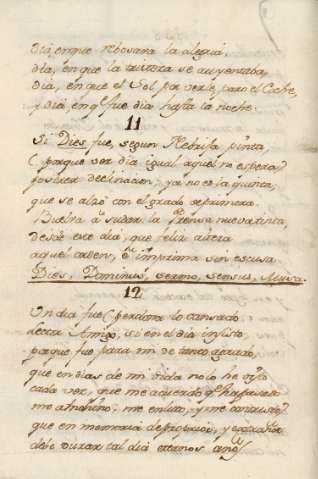 dia, en que rebosava la alegria,
dia, en que la tristeza se auyentaba,
dia, en que el Sol por verle, paro el Coche,
y dia en q.e fue dia hasta la noche.
11
Si Dies fue, segun Nebrisa pinta,
(porque ver dia igual aquel no espera)
por ser declinacion, ya no es la quinta,
que se alzó con el grado de primera.
Buelva á sudar la prensa nueva tinta,
desde este dia, que feliz
aquel orden, é imprima sin escusa
Dies, Dominus, sermo, sensus, Musa.
12
Un dia fue (perdona lo cansado
lector Amigo, si en el dia insisto,
porque fue para mi de tanto agrado,
que en dias de mi vida no lo he visto
cada vez, que me acuerdo
me, y me
que en memoria de, y
debe durar tal dia eternos años